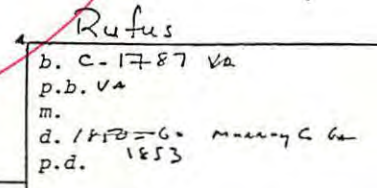 Rufus
b. C-1787 VA
p.b. VA
m.
d. 1850-60 Murray C Ga
1853
p.d.